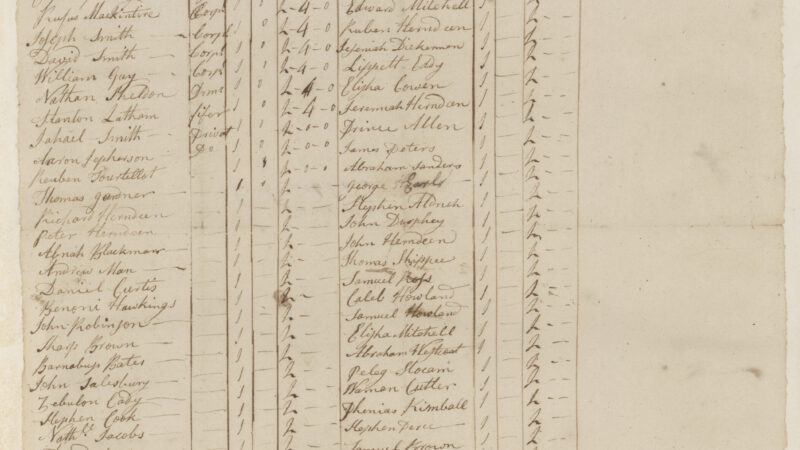 Rufus Mackintire Corpl 1 0 2-4-0 Edward Mitchell 1 2
Joseph Smith Corpl 1 0 2-4-0 Ruben Herndeen 1 2
David Smith Corpl 1 0 2-4-0 Jeremiah Dickerman 1 2
William Gay Corpl 1 0 2-4-0 Lippett Eady 1 2
Nathan Sheldon Drmr 1 0 2-4-0 Elisha Cowen 1 2
Stanton Latham fifer 1 0 2-4-0 Jeremiah Herndeen 1 2
Jahael Smith Privat 1 0 2-0-0 Prince Allen 1 2
Aaron Jepherson Do 1 0 2-0-0 James Peters 1 2
Reuben Tourtellot 1 0 2-0-0 Abraham Sanders 1 2
Thomas gardner 1 0 2 George Earl 1 2
Richard Herndeen 1 2 Stephen Aldrich 1 2
Peter Herndeen 1 2 John Durphey 1 2
Abnah Blackmar 1 2 John Herndeen 1 2
Andrew Man 1 2 Thomas Shippee 1 2
Daniel Curtis 1 2 Samuel Ross 1 2
Benoni Hawkings 1 2 Caleb Howland 1 2
John Robinson 1 2 Samuel Howland 1 2
Sharp Brown 1 2 Elisha Mitchell 1 2
Barnabus Bates 1 2 Abraham Westcot 1 2
John Salesbury 1 2 Peleg Slocam 1 2
Zebulon Cady 1 2 Waman Cutler 1 2
Stephen Cook 1 2 Phenias Kimball 1 2
Nathl Jacobs 1 2 Stephen Perce 1 2
Samuel Brown